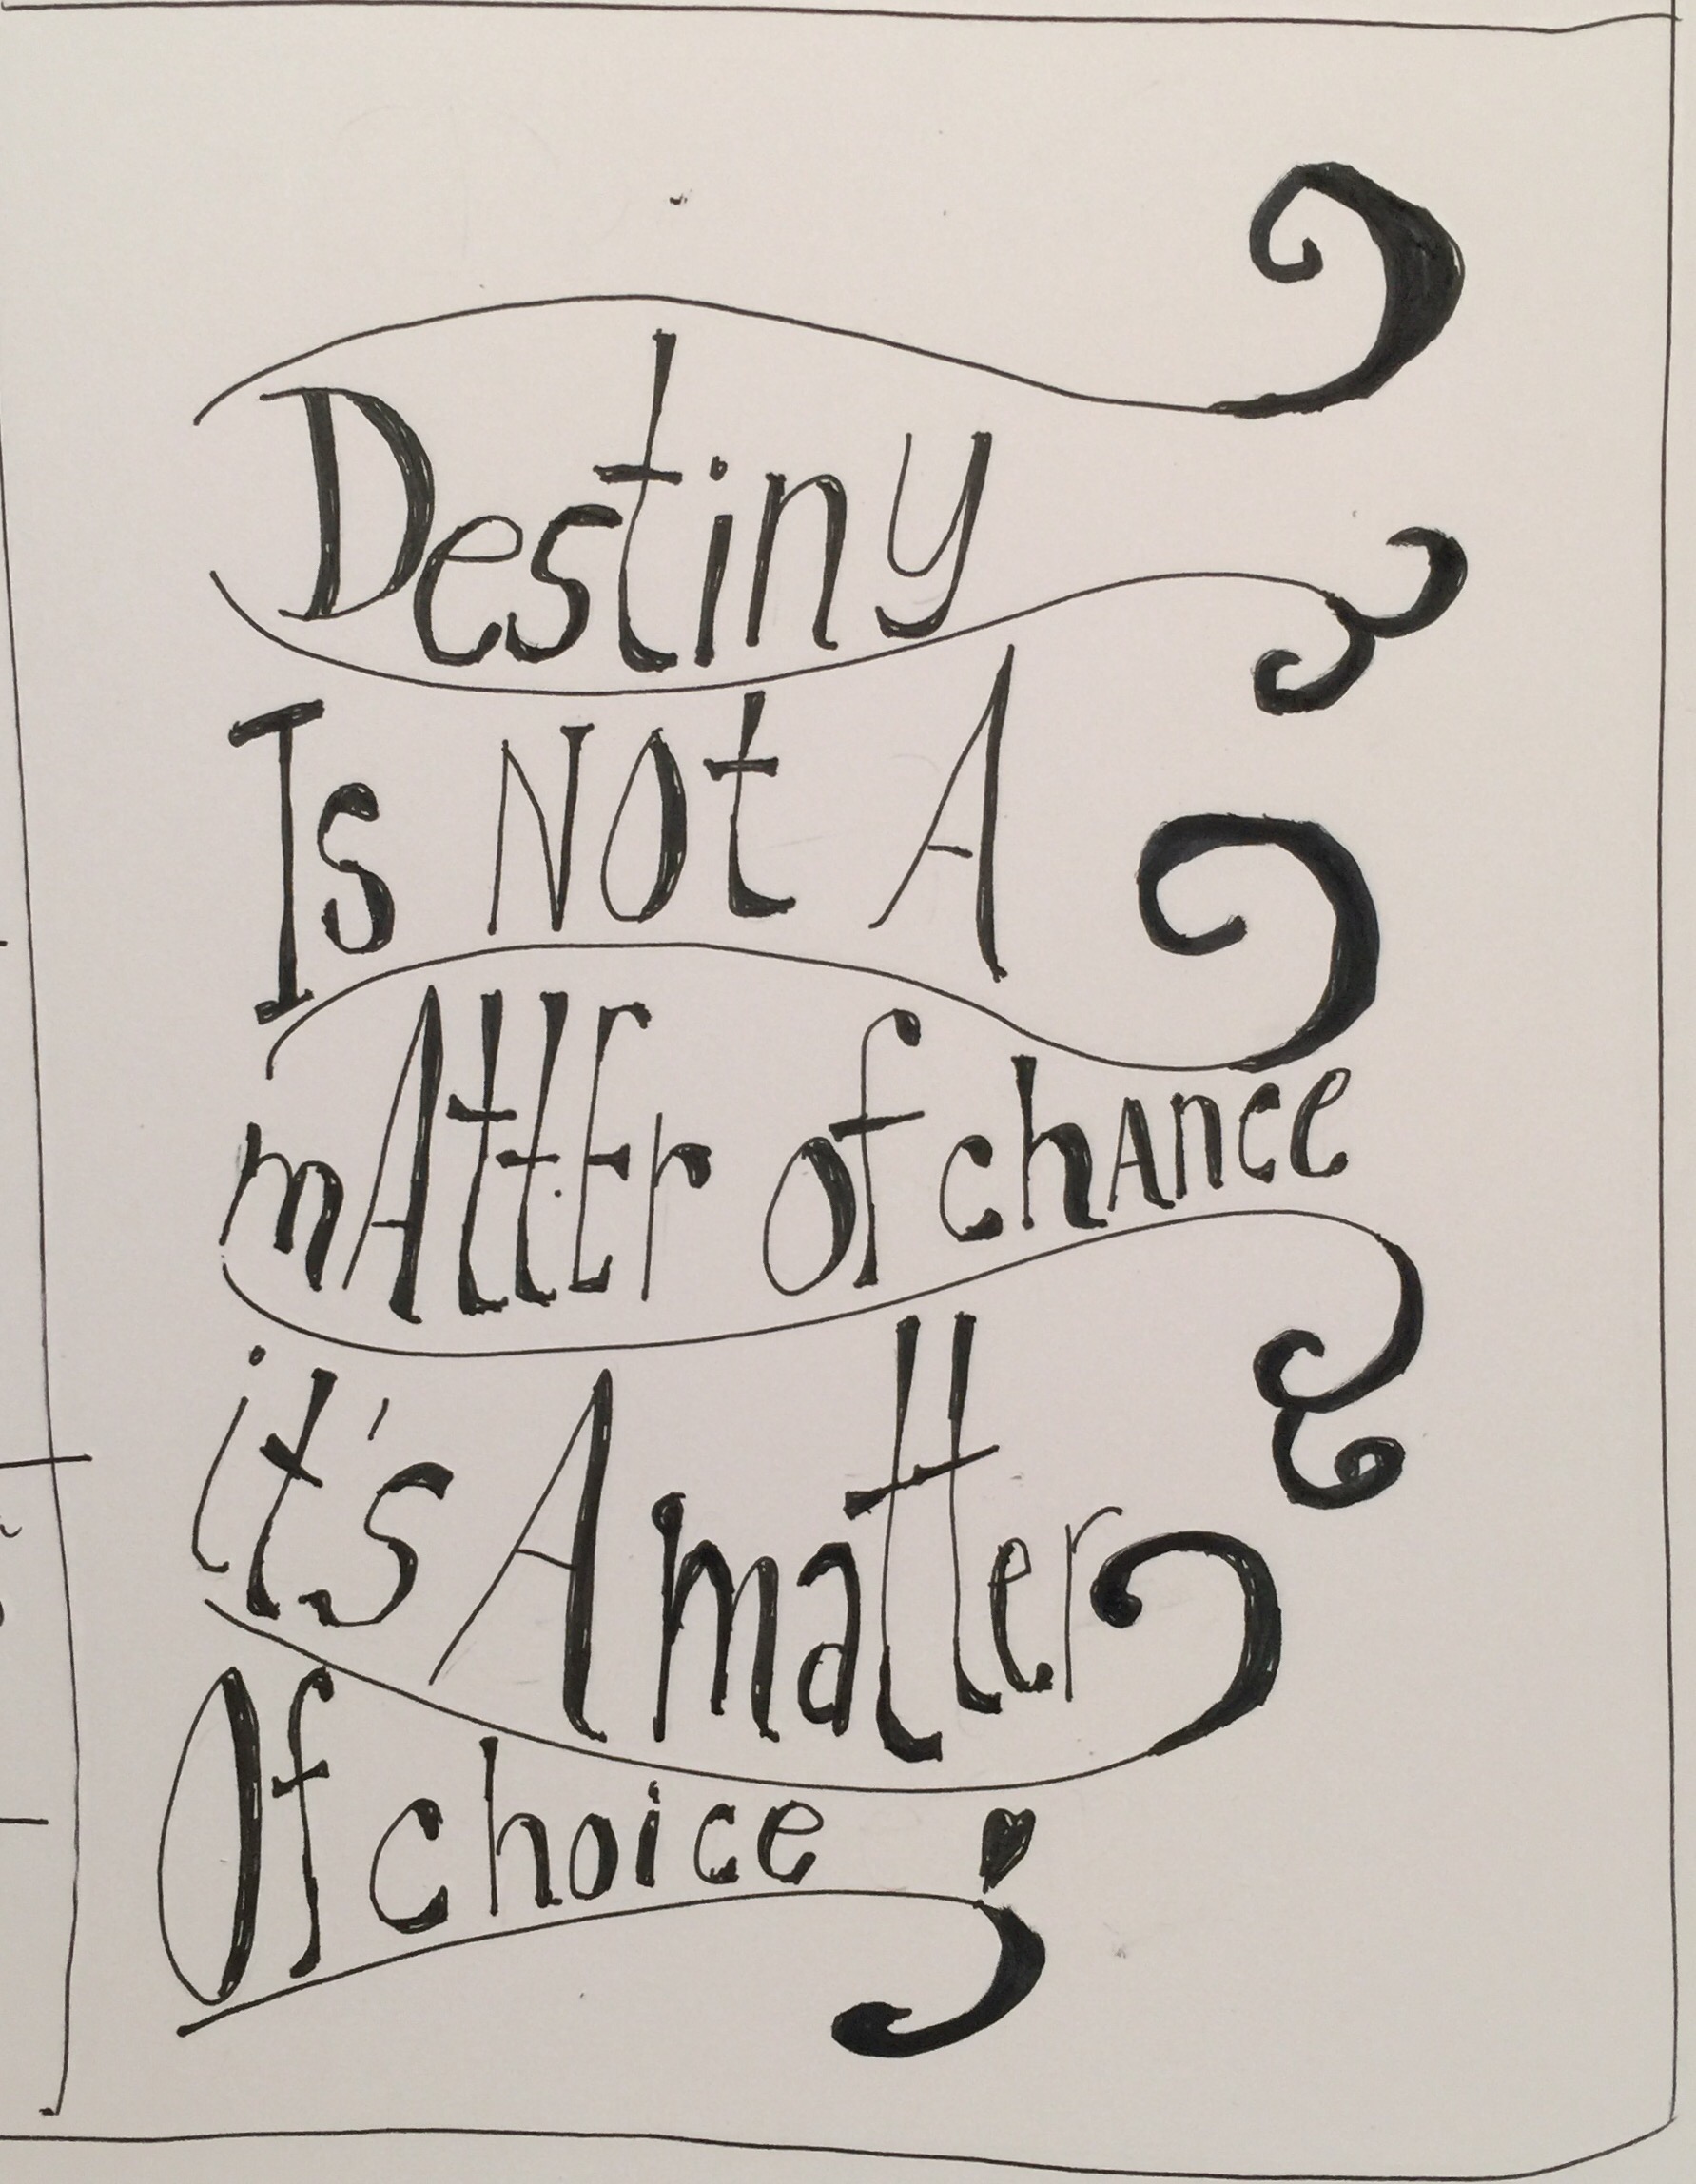 Destiny
Is Not A
mAttEr of chAnce
it's A matter
Of choice